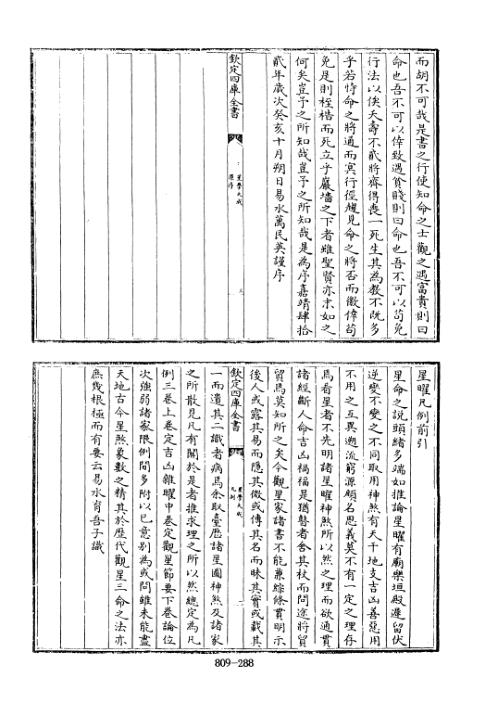 而胡不可哉是書之行使知命之士觀之遇富貴則曰
命也吾不可以倖致遇貧賤則曰命也吾不可以苟免
行法以俟夭壽不貳將齊得喪一死生其為教不既多
乎若恃命之將通而冥行徑趨見命之將否而徼倖苟
免是則桎梏而死立乎巖墻之下者雖聖賢亦末如之
何矣豈予之所知哉豈予之所知哉是為序嘉靖肆拾
貳年歲次癸亥十月朔日易水萬民英謹序
欽定四庫全書
星學大成
原序
三
星曜凡例前引
星命之說頭緒多端如推論星曜有廟樂垣殿遲留伏
逆變不變之不同取用神煞有天干地支吉凶善惡用
不用之互異遡流窮源顧名思義莫不有一定之理存
馬看星者不先明諸星曜神煞所以然之理而欲通貫
諸經斷人命吉凶禍福是猶瞽者舍其杖而問途將貿
貿焉莫知所之矣今觀星家諸書不能兼綜條貫明示
後人或露其易而隱其微或傳其名而昧其實或載其
欽定四庫全書
星學大成
凡例
一
一而遺其二識者病焉余取臺厯諸星圖神煞及諸家
之所散見凡有關於是者推求理之所以然總定為凡
例三卷上卷定吉凶雜曜中卷定觀星節要下卷論位
次強弱諸家限例間多附以己意別為或問雖未能盡
天地古今星煞象數之精其於歷代觀星三命之法亦
庶幾根極而有要云易水育吾子識
809-288